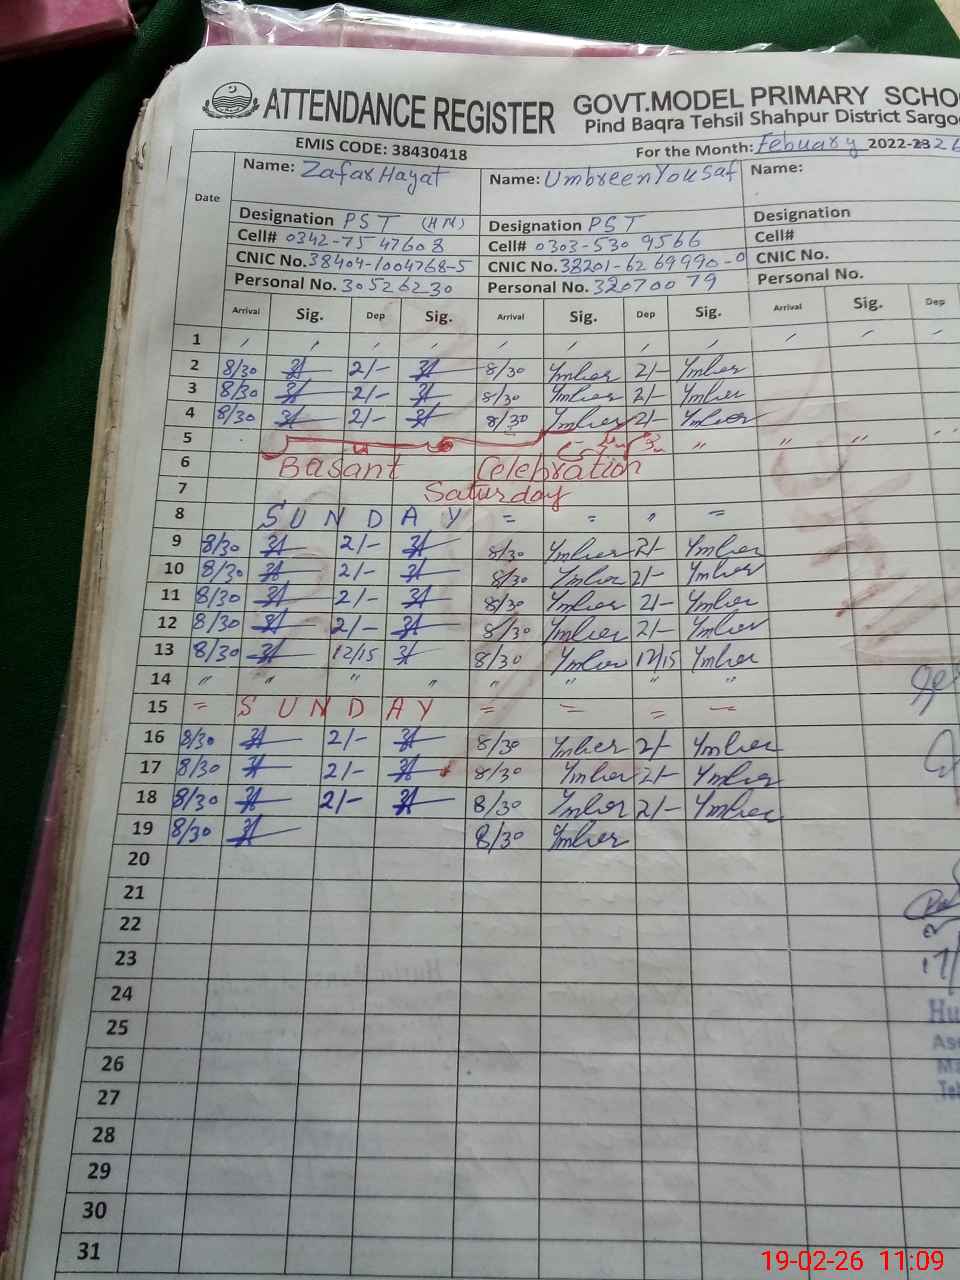 ATTENDANCE REGISTER GOVT.MODEL PRIMARY SCHO
Pind Baqra Tehsil Shahpur District Sargo
EMIS CODE: 38430418 For the Month: Febuary 2022-23 26
Date Name: Zafar Hayat Name: Umbreen Yousaf Name:
Designation PST (HM) Designation PST Designation
Cell# 0342-7547608 Cell# 0303-530 9566 Cell#
CNIC No. 38404-1004768-5 CNIC No. 38201-6269990-0 CNIC No.
Personal No. 30526230 Personal No. 32070079 Personal No.
Arrival Sig. Dep Sig. Arrival Sig. Dep Sig. Arrival Sig. Dep
1
2 8/30 2/- 8/30 2/-
3 8/30 2/- 8/30 2/-
4 8/30 2/- 8/30 2/-
5 " " " "
6 Basant Celebration
7 Saturday
8 SUNDAY = = " =
9 8/30 2/- 8/30 2/-
10 8/30 2/- 8/30 2/-
11 8/30 2/- 8/30 2/-
12 8/30 2/- 8/30 2/-
13 8/30 12/15 8/30 12/15
14 " " " " " " " "
15 = SUNDAY = = = =
16 8/30 2/- 8/30 2/-
17 8/30 2/- 8/30 2/-
18 8/30 2/- 8/30 2/-
19 8/30 8/30
20
21
22
23
24
25
26
27
28
29
30
31
19-02-26 11:09